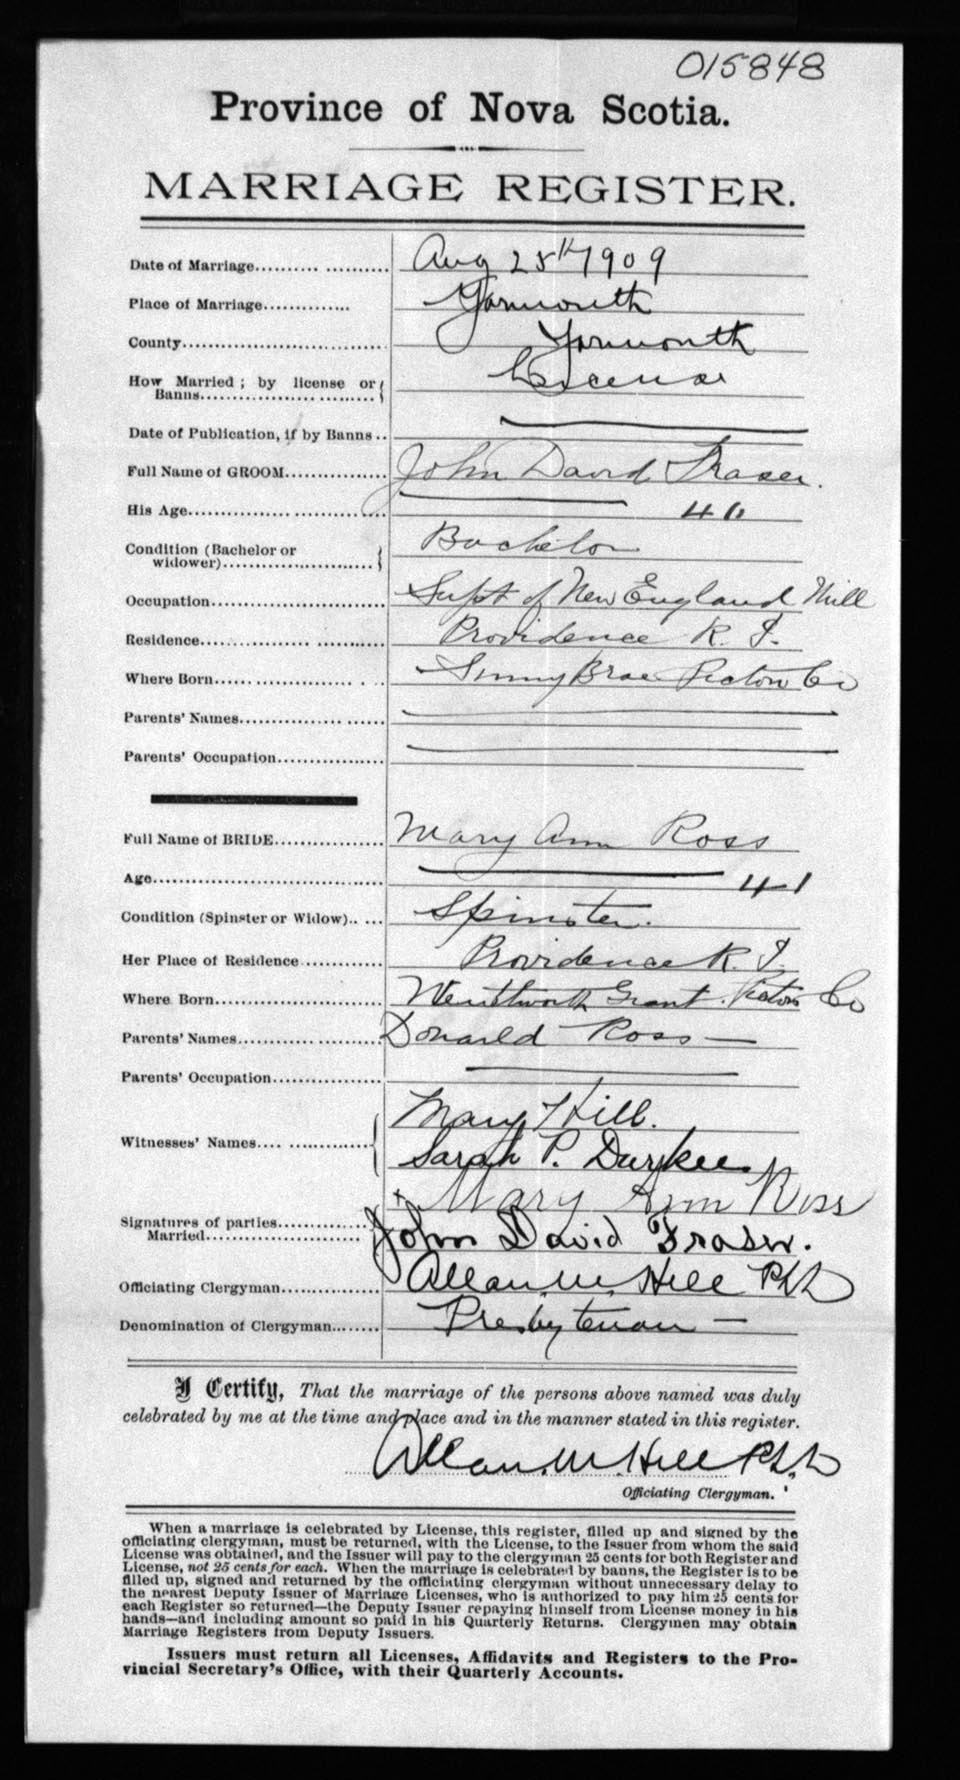 015848
Province of Nova Scotia.
MARRIAGE REGISTER.
Date of Marriage.......... .......... Aug 25th 1909
Place of Marriage............. Yarmouth
County.................................. Yarmouth
How Married ; by license or License
Banns............................
Date of Publication, if by Banns ..
Full Name of GROOM............... John David Fraser.
His Age.................................
Condition (Bachelor or Bachelor
widower)........................
Occupation............................. Supt of New England Mill
Residence............... ............ Providence R. I.
Where Born...................... . . Sunny Brae Pictou Co
Parents' Names.......................
Parents' Occupation.................
Full Name of BRIDE................. Mary Ann Ross
Age....................................... 41
Condition (Spinster or Widow).. .... Spinster.
Her Place of Residence ............. Providence R. I.
Where Born......................... Wentworth Grant. Pictou Co
Parents' Names........................ Donald Ross —
Parents' Occupation..................
Mary Hill.
Witnesses' Names.... ..............
Sarah P. Durkee
x Mary Ann Ross
Signatures of parties..............
Married........................ John David Fraser.
Officiating Clergyman............... Allan. M. Hill Ph.D
Denomination of Clergyman........ Presbyterian —
I Certify, That the marriage of the persons above named was duly
celebrated by me at the time and place and in the manner stated in this register.
Allan. M. Hill Ph.D
Officiating Clergyman.
When a marriage is celebrated by License, this register, filled up and signed by the
officiating clergyman, must be returned, with the License, to the Issuer from whom the said
License was obtained, and the Issuer will pay to the clergyman 25 cents for both Register and
License, not 25 cents for each. When the marriage is celebrated by banns, the Register is to be
filled up, signed and returned by the officiating clergyman without unnecessary delay to
the nearest Deputy Issuer of Marriage Licenses, who is authorized to pay him 25 cents for
each Register so returned—the Deputy Issuer repaying himself from License money in his
hands—and including amount so paid in his Quarterly Returns. Clergymen may obtain
Marriage Registers from Deputy Issuers.
Issuers must return all Licenses, Affidavits and Registers to the Pro-
vincial Secretary's Office, with their Quarterly Accounts.